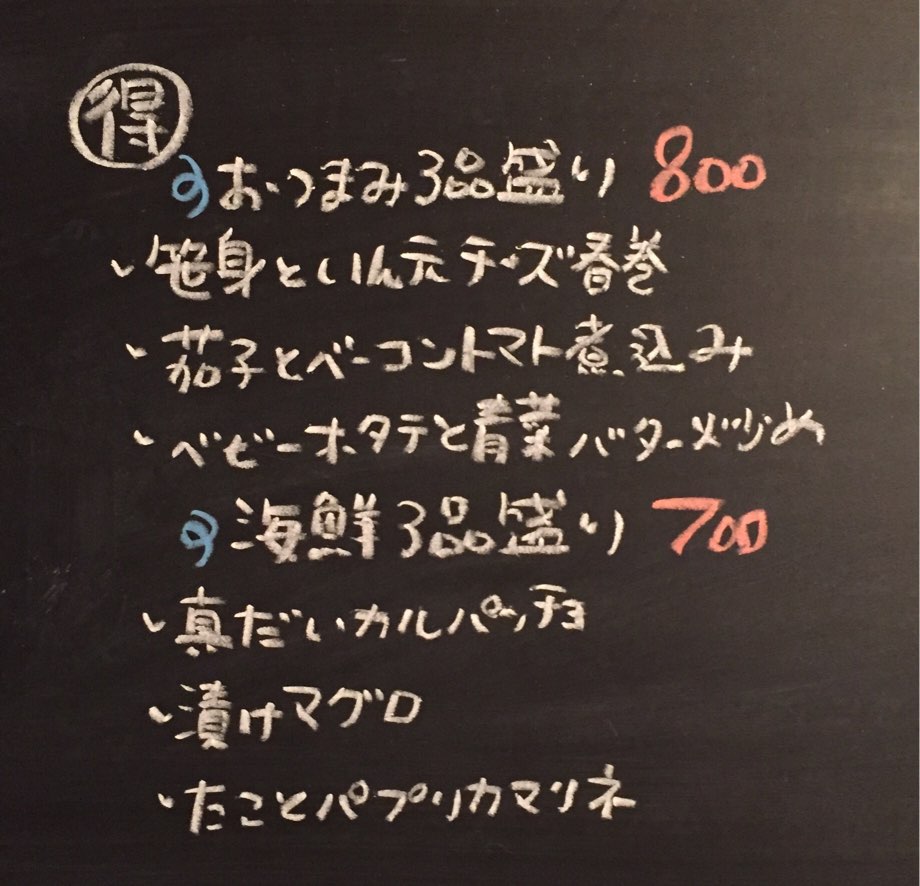 得
おつまみ3品盛り 800
・笹身といん元チーズ春巻
・茄子とベーコントマト煮込み
・ベビーホタテと青菜バター炒め
海鮮3品盛り 700
・真だいカルパッチョ
・漬けマグロ
・たことパプリカマリネ